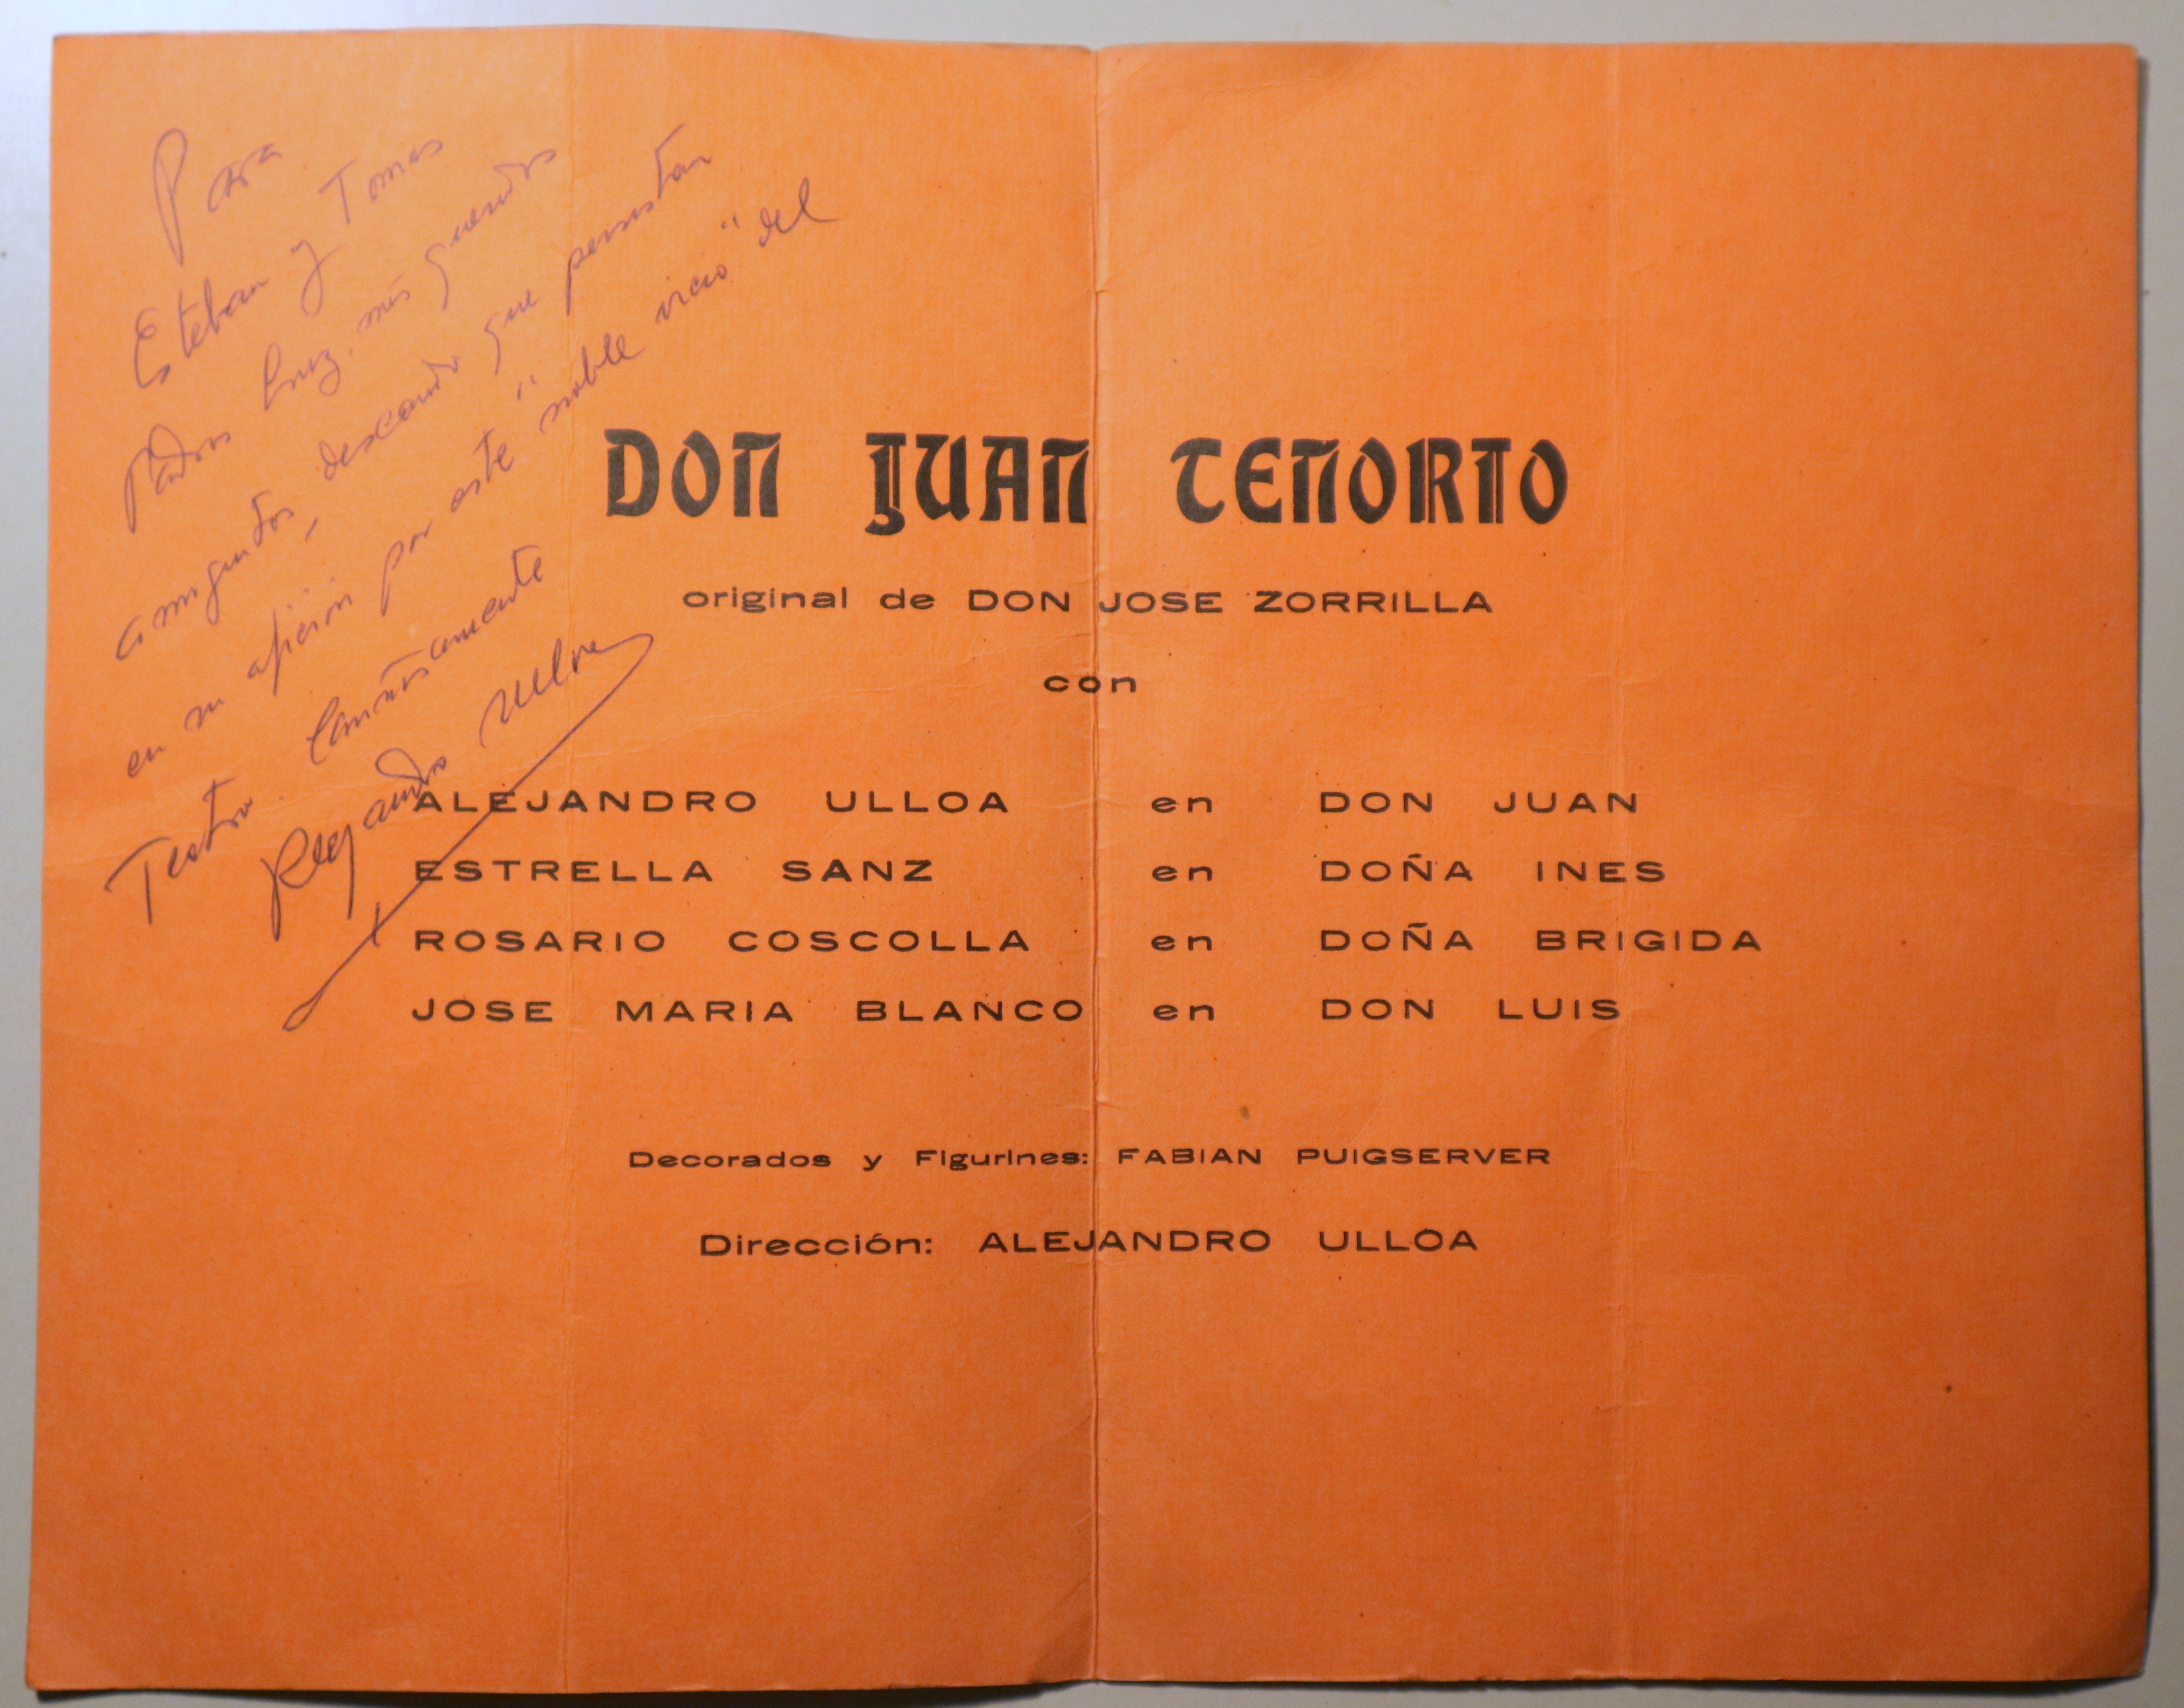 Para
Esteban y Tomas
Padros Cruz, mis queridos
amiguitos, deseando que persistan
en su afición por este "noble vicio" del
Teatro. Cariñosamente
Alejandro Ulloa
DON JUAN TENORIO
original de DON JOSE ZORRILLA
con
ALEJANDRO ULLOA en DON JUAN
ESTRELLA SANZ en DOÑA INES
ROSARIO COSCOLLA en DOÑA BRIGIDA
JOSE MARIA BLANCO en DON LUIS
Decorados y Figurines: FABIAN PUIGSERVER
Dirección: ALEJANDRO ULLOA